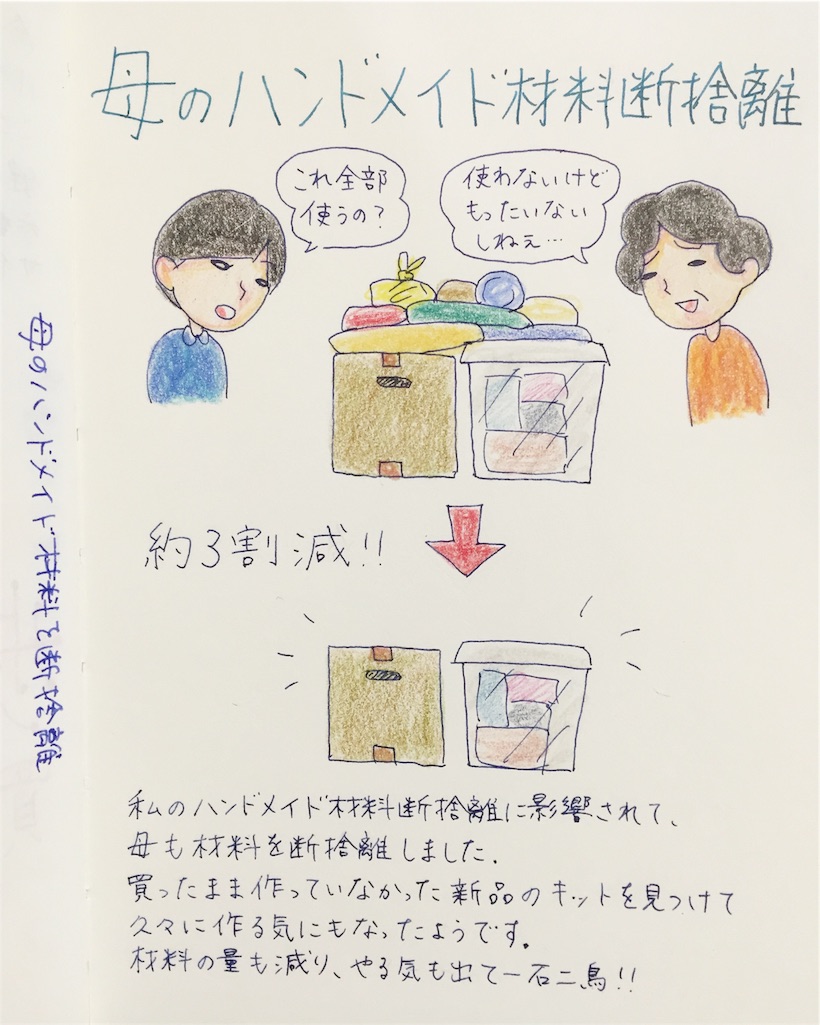 母のハンドメイド材料断捨離
これ全部
使うの?
使わないけど
もったいない
しねぇ…
約3割減!!
私のハンドメイド材料断捨離に影響されて、
母も材料を断捨離しました。
買ったまま作っていなかった新品のキットを見つけて
久々に作る気にもなったようです。
材料の量も減り、やる気も出て一石二鳥!!
母のハンドメイド材料を断捨離